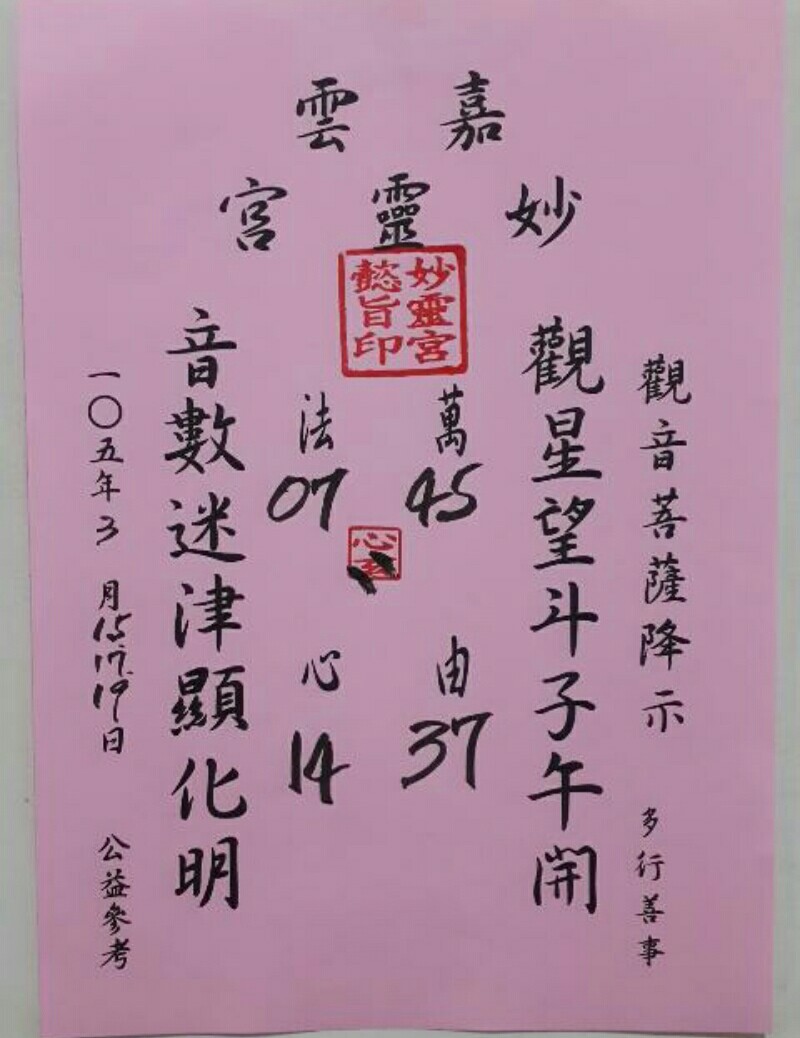 嘉雲
妙靈宮
妙靈宮
懿旨印
觀音菩薩降示 多行善事
觀星望斗子午開
萬 45
由 37
法 07
心 14
心
音數迷津顯化明
一〇五年3月15.17.19日 公益參考